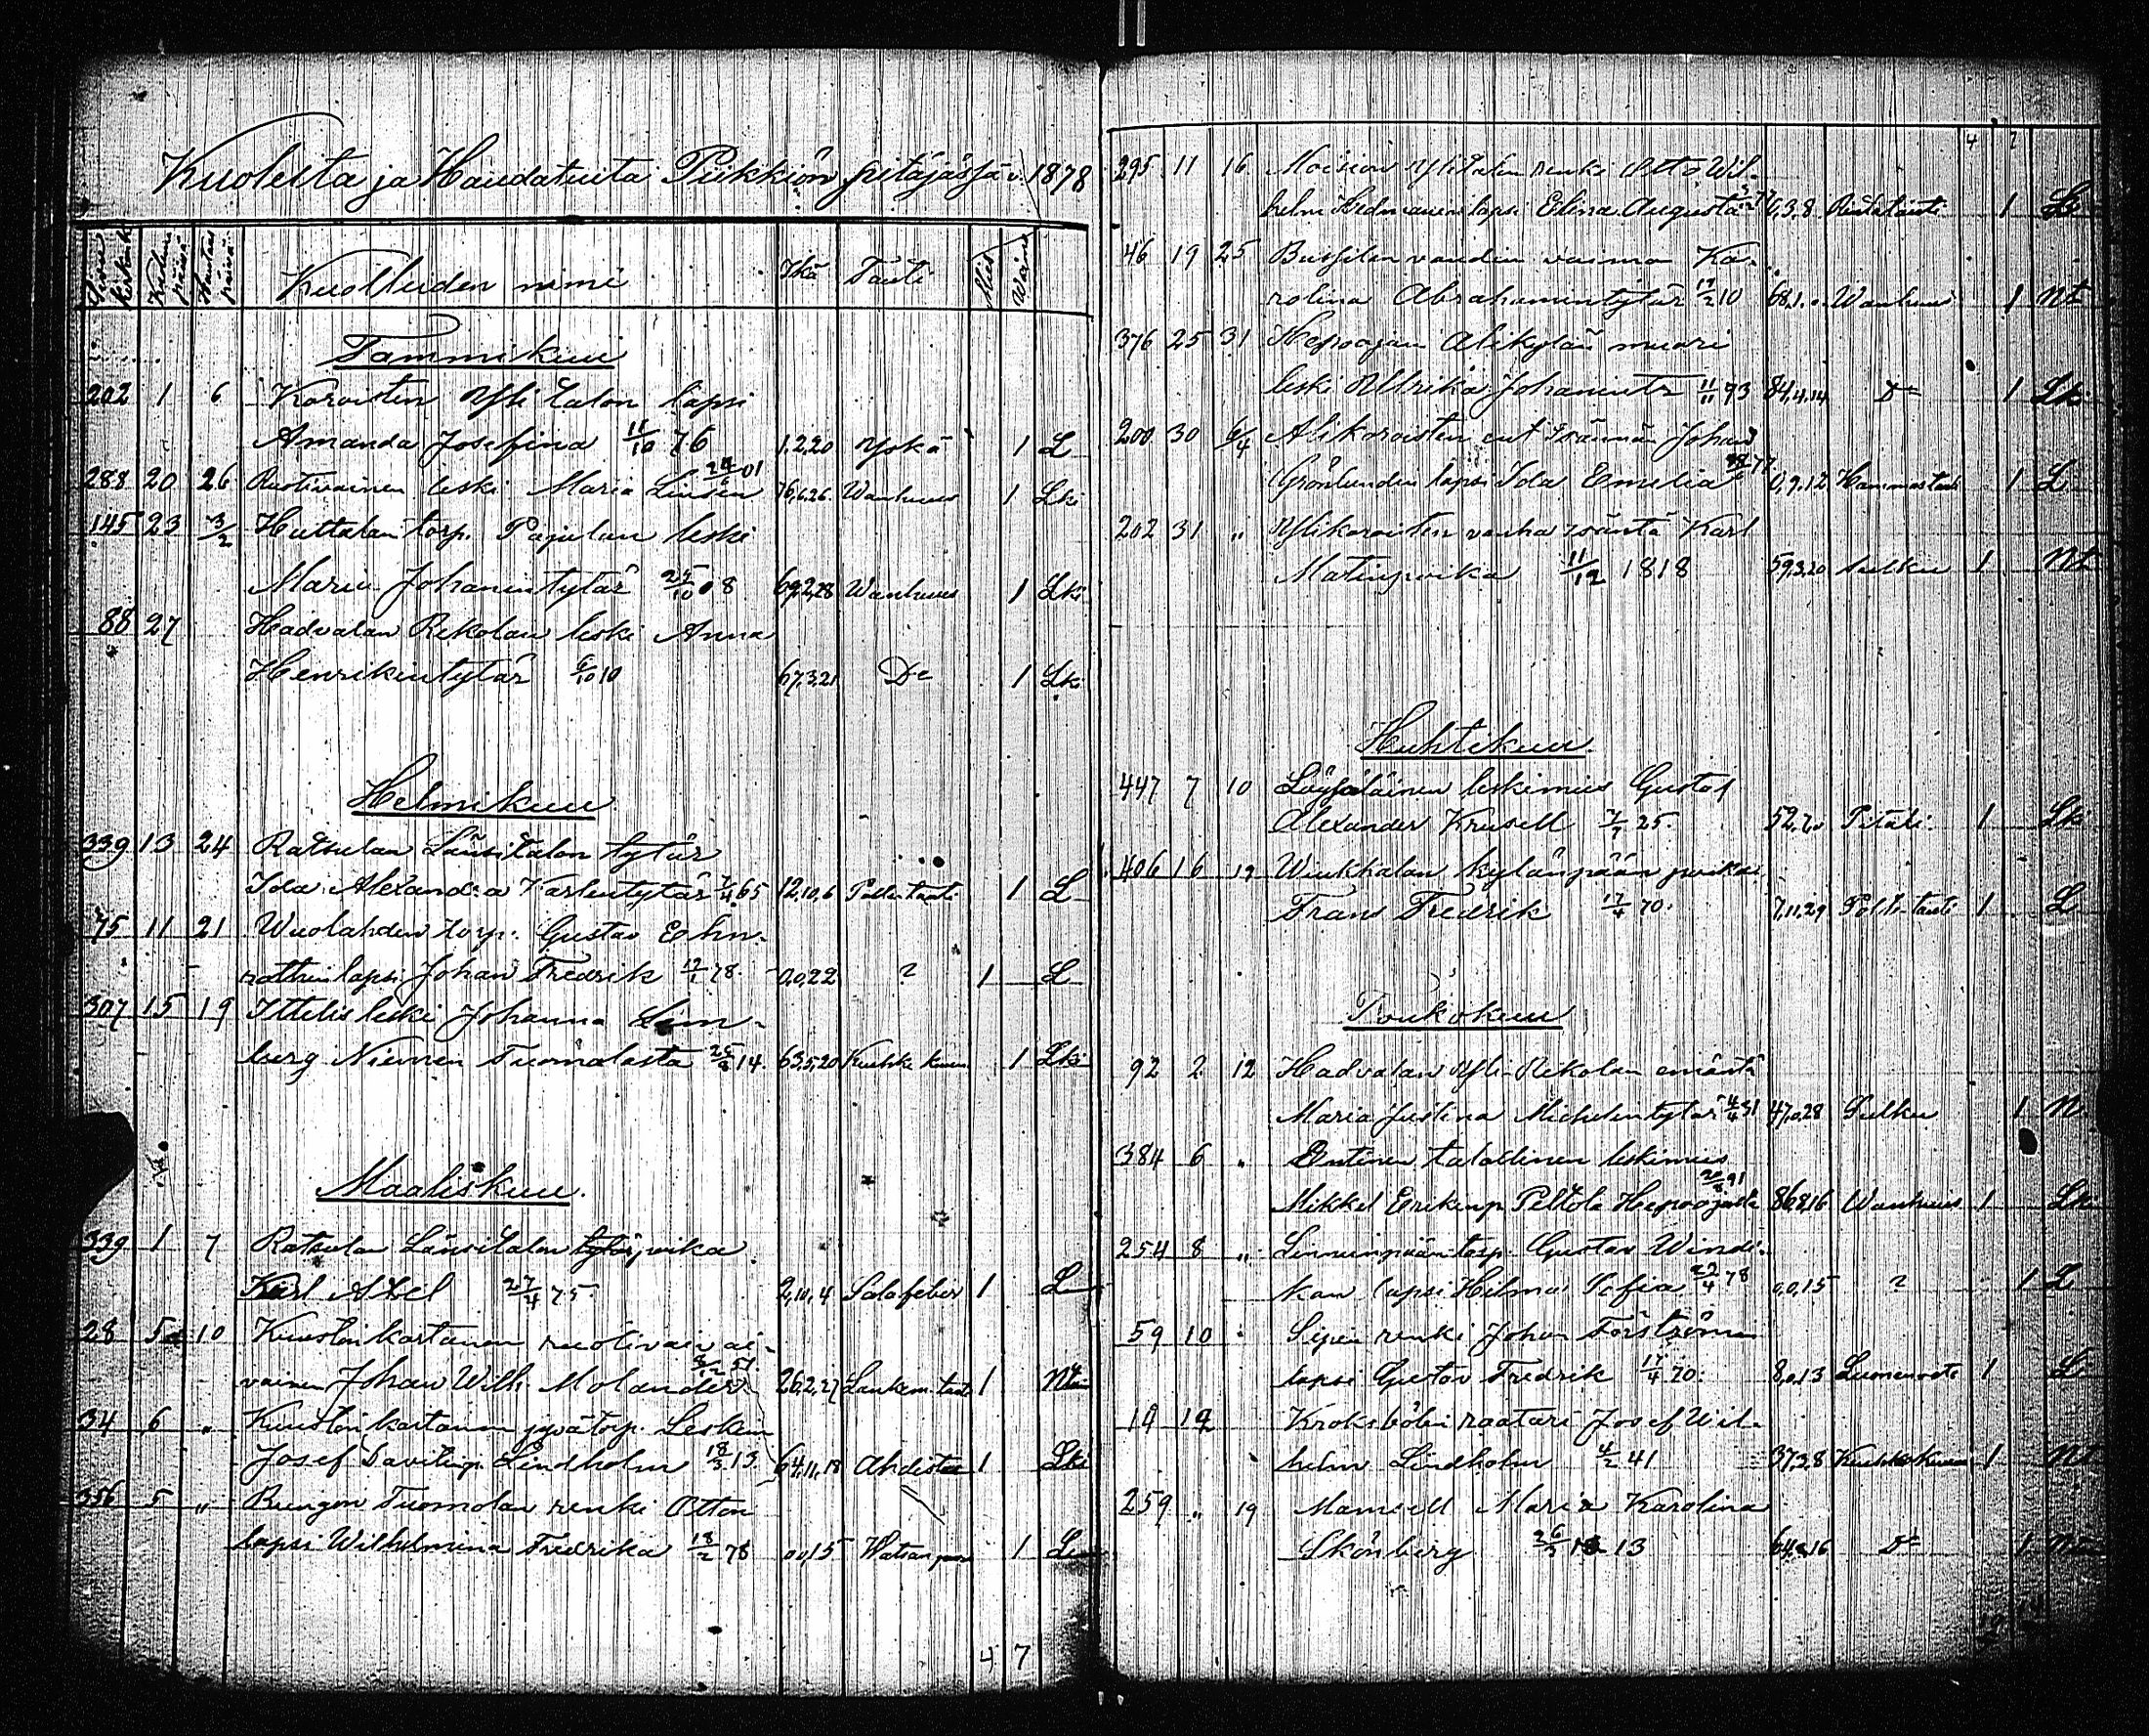 Kuolleita ja Haudatuita Piikkiön pitäjässä v. 1878
Sivu kirkonk. Kuolin päivä Hautaus päivä Kuolleiden nimi Ikä Tauti Mies Waimo
Tammikuu
202 1 6 Koroisten Yli talon lapsi
Amanda Josefina 11/10 76 1,2,20 Yskä 1 L
288 20 26 Ruotivainen leski Maria Linsen 24/6 01 76,6,26 Wanhuus 1 Lki
145 23 3/2 Huttalan torp. Pajulan leski
Maria Johanintytär 25/10 08 69,2,28 Wanhuus 1 Lki
88 27 Hadvalan Rekolan leski Anna
Henrikintytär 6/10 10 67,3,21 Do 1 Lki
Helmikuu
339 13 24 Ratsulan Länsitalon tytär
Ida Alexandra Karlentytär 7/4 65 12,10,6 Poltto tauti 1 L
75 11 21 Wuolahden torp. Gustav Ehn-
rothin lapsi Johan Fredrik 19/1 78 0,0,22 ? 1 L
307 15 19 Ittelis leski Johanna Lim-
berg Niemen Tuomolasta 25/8 14. 63,5,20 Keuhko kuume 1 Lki
Maaliskuu.
339 1 7 Ratsulan Länsitalon poika
Karl Axel 27/4 75 2,10,4 Salafeber 1 L
28 5 10 Kuuston kartanon ruotivaivai-
vainen Johan Wilh. Molander 8/12 51. 26,2,27 1
34 6 " Kuuston kartanon torp. Leskim
Josef Davitinp. Lindholm 18/3 13. 64,11,18 Ahdistus 1 Lki
356 5 " Rungon Tuomolan renki Otton
lapsi Wilhelmina Fredrika 18/2 78 0,0,15 Watsan 1 L
4 7
4 7
295 11 16 Moision Ylitalon renki Otto Wil-
helm Hedmanin lapsi Elina Augusta 0,3,8 Rintatauti 1 L
46 19 25 Bussilan voudin vaimo Ka-
rolina Abrahamintytär 19/2 10 68,1,0 Wanhuus 1 Nt
376 25 31 Hepoojan Alikylän muori
leski Ulrika Johanint. 11/11 93 84,4,14 Do 1 Lki
200 30 6/4 Alikoroisten ent. Isännän Johan
Grönlundin lapsi Ida Emelia 18/6 77 0,9,12 Hammastauti 1 L
202 31 " Ylikoroisten vanha isäntä Karl
Matinpoika 11/12 1818 59,3,20 Sulku 1 Nt
Huhtikuu
447 7 10 Löysäläinen leskimies Gustaf
Alexander Krusell 7/7 25. Pitali. 1 Lki
406 16 19 Wiukkalan kylänpään poika
Frans Fredrik 17/4 70. 7,11,29 Poltto-tauti 1 L
Toukokuu
92 2 12 Hadvalan Yli-Rekolan emäntä
Maria Justina Mickelintytär 4/4 31 47,0,28 Sulku 1 N
384 6 " Entinen talollinen leskimies
Mikkel Erikinp. Peltola Hepoojasta 20/8 91 86,8,16 Wanhuus 1 Lki
254 8 " Linnunpään torp. Gustav Windi-
kan lapsi Hilma Sofia 22/4 78 0,0,15 ? 1 L
59 10 Sipin renki Johan Törströmin
lapsi Gustav Fredrik 17/4 70. 8,0,13 1 L
19 12 Kroksbölin raatari Josef Wil-
helm Lindholm 4/2 41 37,3,8 Keuhkokuume 1 Nt
259 " 19 Mamsell Maria Karolina
Skönberg 26/2 13 64,2,16 Do 1